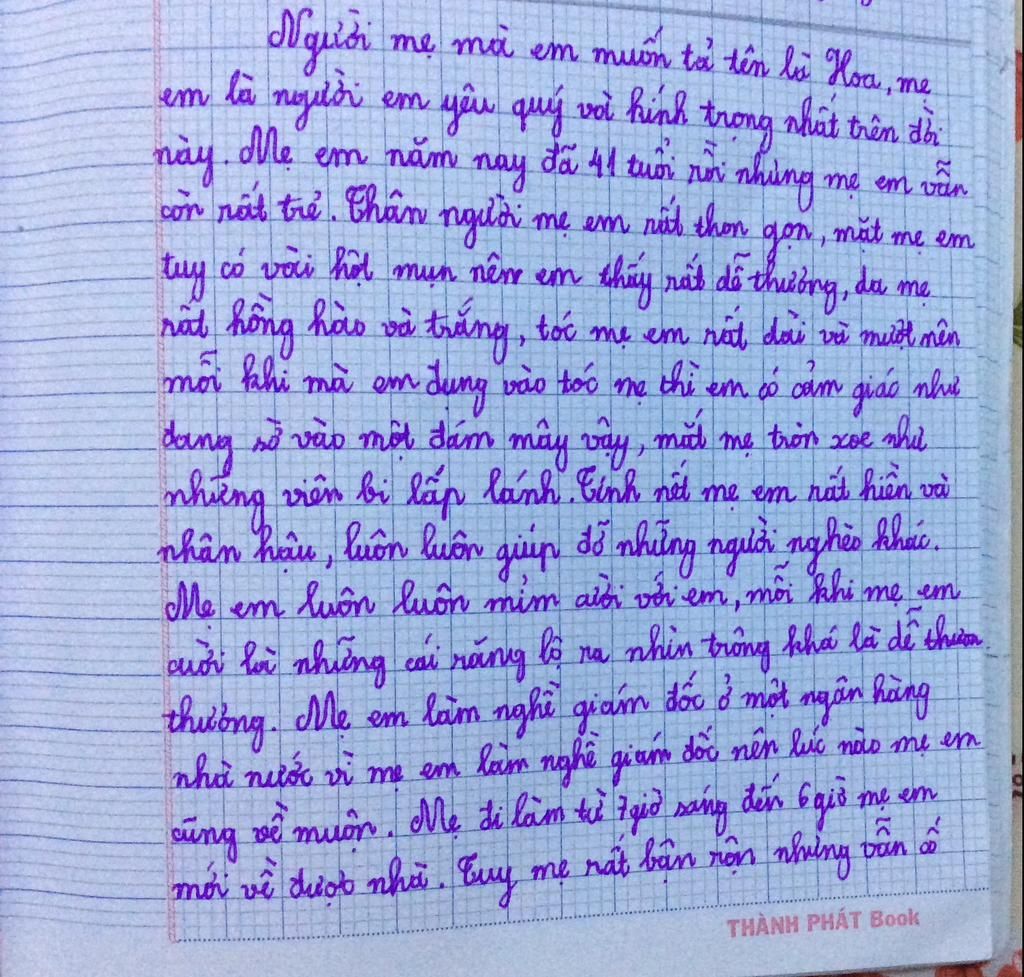 Người mẹ mà em muốn tả tên là Hoa, mẹ
em là người em yêu quý và kính trọng nhất trên đời
này. Mẹ em năm nay đã 41 tuổi rồi nhưng mẹ em vẫn
còn rất trẻ. Thân người mẹ em rất thon gọn, mặt mẹ em
tuy có vài hột mụn nên em thấy rất dễ thương, da mẹ
rất hồng hào và trắng, tóc mẹ em rất dài và mượt nên
mỗi khi mà em đụng vào tóc mẹ thì em có cảm giác như
đang sờ vào một đám mây vậy, mắt mẹ tròn xoe như
những viên bi lấp lánh. Tính nết mẹ em rất hiền và
nhân hậu, luôn luôn giúp đỡ những người nghèo khác.
Mẹ em luôn luôn mỉm cười với em, mỗi khi mẹ em
cười là những cái răng lộ ra nhìn trông khá là dễ thươn
thương. Mẹ em làm nghề giám đốc ở một ngân hàng
nhà nước vì mẹ em làm nghề giám đốc nên lúc nào mẹ em
cũng về muộn. Mẹ đi làm từ 7 giờ sáng đến 6 giờ mẹ em
mới về được nhà. Tuy mẹ rất bận rộn nhưng vẫn cố
THÀNH PHÁT Book